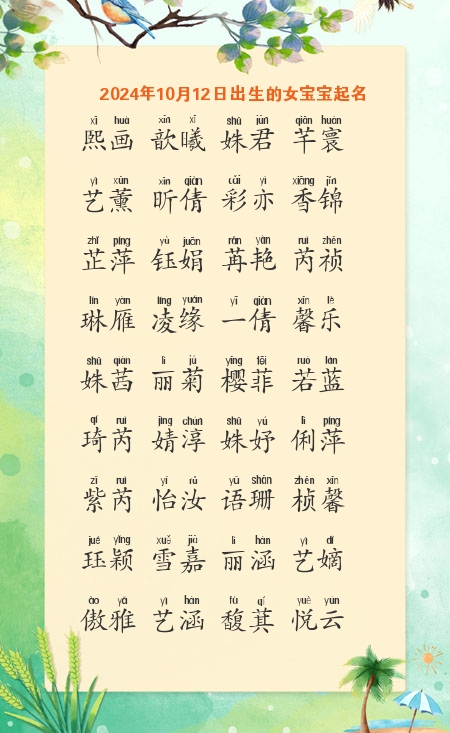 2024年10月12日出生的女宝宝起名
xī huà xīn xī shū jūn qiān huán
熙画 歆曦 姝君 芊寰
yì xūn xīn qiàn cǎi yì xiāng jǐn
艺薰 昕倩 彩亦 香锦
zhǐ píng yù juān rǎn yàn ruì zhēn
芷萍 钰娟 苒艳 芮祯
lín yàn líng yuán yī qiàn xīn lè
琳雁 凌缘 一倩 馨乐
shū qiàn lì jú yīng fēi ruò lán
姝茜 丽菊 樱菲 若蓝
qí ruì jìng chún shū yú lì píng
琦芮 婧淳 姝妤 俐萍
zǐ ruì yí rǔ yǔ shān zhēn xīn
紫芮 怡汝 语珊 桢馨
jué yǐng xuě jiā lì hán yì dí
珏颖 雪嘉 丽涵 艺嫡
ào yǎ yì hán fù qí yuè yún
傲雅 艺涵 馥萁 悦云